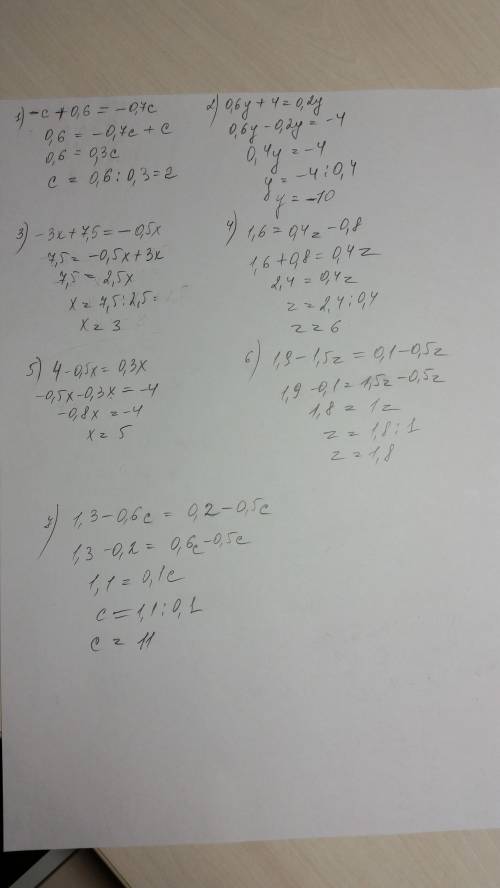 1) -c + 0,6 = -0,7c
0,6 = -0,7c + c
0,6 = 0,3c
c = 0,6 : 0,3 = 2
2) 0,6y + 4 = 0,2y
0,6y - 0,2y = -4
0,4y = -4
y = -4 : 0,4
y = -10
3) -3x + 7,5 = -0,5x
7,5 = -0,5x + 3x
7,5 = 2,5x
x = 7,5 : 2,5 =
x = 3
4) 1,6 = 0,4z - 0,8
1,6 + 0,8 = 0,4z
2,4 = 0,4z
z = 2,4 : 0,4
z = 6
5) 4 - 0,5x = 0,3x
-0,5x - 0,3x = -4
-0,8x = -4
x = 5
6) 1,9 - 1,5z = 0,1 - 0,5z
1,9 - 0,1 = 1,5z - 0,5z
1,8 = 1z
z = 1,8 : 1
z = 1,8
7) 1,3 - 0,6c = 0,2 - 0,5c
1,3 - 0,2 = 0,6c - 0,5c
1,1 = 0,1c
c = 1,1 : 0,1
c = 11